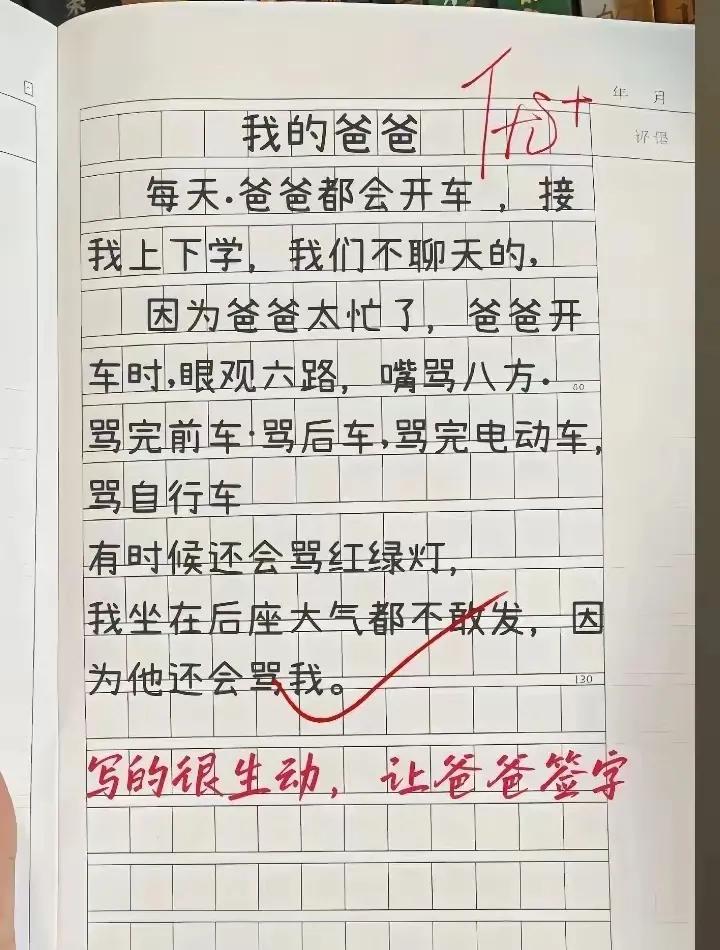 年 月
优+
我的爸爸
每天·爸爸都会开车，接
我上下学，我们不聊天的，
因为爸爸太忙了，爸爸开
车时，眼观六路，嘴骂八方.
80
骂完前车·骂后车，骂完电动车，
骂自行车
有时候还会骂红绿灯，
我坐在后座大气都不敢发，因
为他还会骂我。
130
写的很生动，让爸爸签字